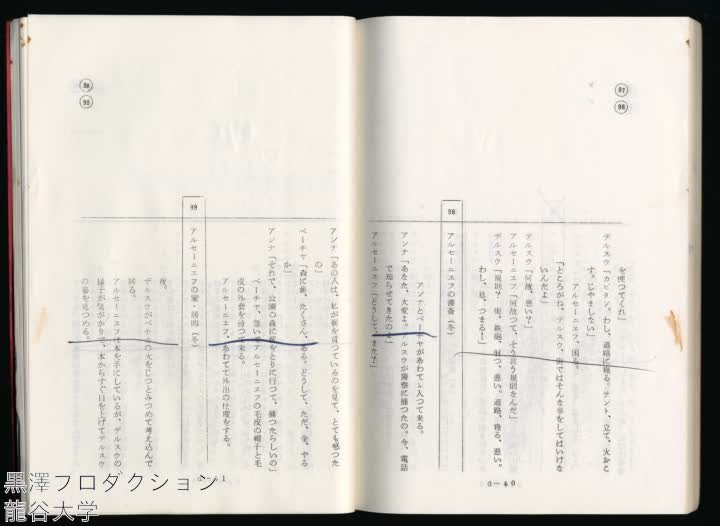 97
98
を使つてくれ」
デルスウ「カピタン。わし、道路に寝る。テント、立て、火おこ
す。じやましない」
アルセーニエフ、困る。
「ところがね、デルスウ、街ではそんな事をしてはいけな
いんだよ」
デルスウ「何故、悪い？」
アルセーニエフ「何故つて、そう言う規則なんだ」
デルスウ「規則？ 街、鉄砲、射つ、悪い。道路、寝る、悪い。
わし、息、つまる！」
98
アルセーニエフの書斎（冬）
アンナとペーチャがあわてゝ入つて来る。
アンナ「あなた、大変よ。デルスウが警察に捕つたの。今、電話
で知らせてきたの」
アルセーニエフ「どうして、また？」
d—40
98
99
アンナ「あの人は、私が薪を買つているのを見て、とても怒つた
の」
ペーチャ「森に薪、たくさん、ある。どうして、ただ、金、やる
か」
アンナ「それで、公園の森に薪をとりに行つて、捕つたらしいの」
ペーチャ、急いでアルセーニエフの毛皮の帽子と毛
皮の外套を持つて来る。
アルセーニエフ、あわてて外出の仕度をする。
99
アルセーニエフの家・居間（冬）
夜。
デルスウがペチカの火をじつとみつめて考え込んで
居る。
アルセーニエフは本を手にしているが、デルスウの
様子が気がかりで、本からすぐ目を上げてデルスウ
の姿を見つめる。
黒澤プロダクション
龍谷大学